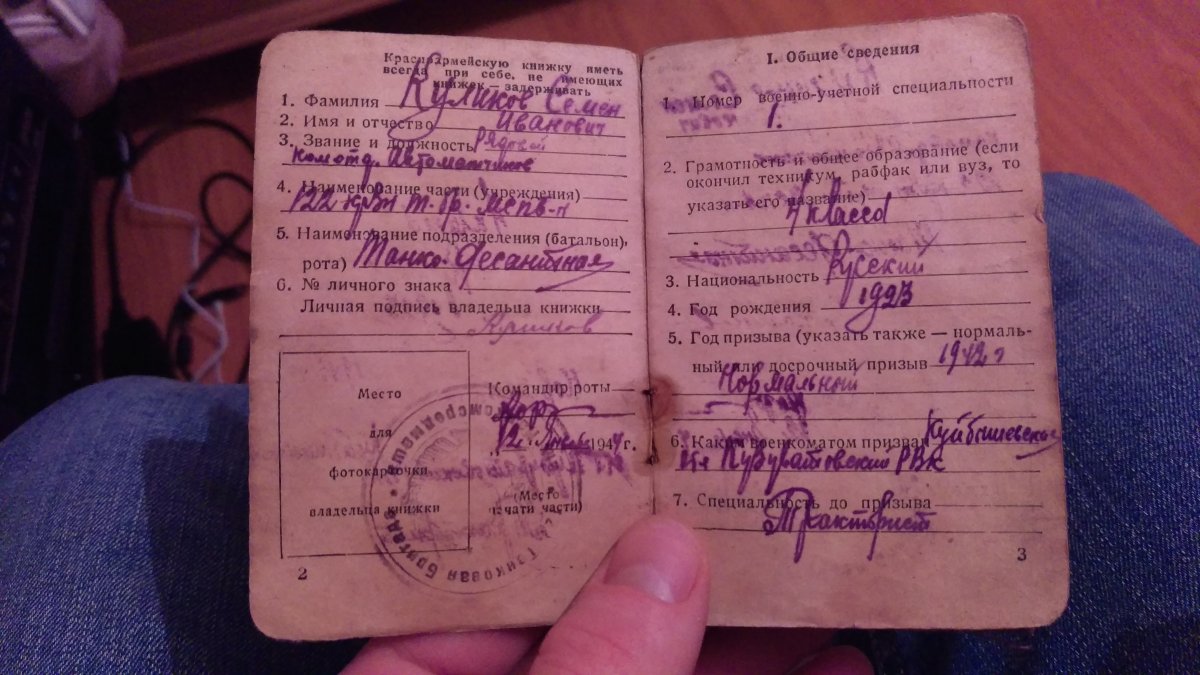 Красноармейскую книжку иметь
всегда при себе. не имеющих
книжек — задерживать
1. Фамилия Куликов Семен
2. Имя и отчество Иванович
3. Звание и должность рядовой
ком отд. Автоматчиков
4. Наименование части (учреждения)
122
5. Наименование подразделения (батальон,
рота) Танко-десантная
6. № личного знака
Личная подпись владельца книжки
Место
для
фотокарточки
владельца книжки
Командир роты
12 1944 г.
(Место
печати части)
Танковая Бригада
2
I. Общие сведения
1. Номер военно-учетной специальности
1.
2. Грамотность и общее образование (если
окончил техникум, рабфак или вуз, то
указать его название)
4 класса
3. Национальность Русский
4. Год рождения 1923
5. Год призыва (указать также — нормаль-
ный или досрочный призыв 1942 г
Нормальный
6. Каким военкоматом призван Куйбышевская
РВК
7. Специальность до призыва
Тракторист
3